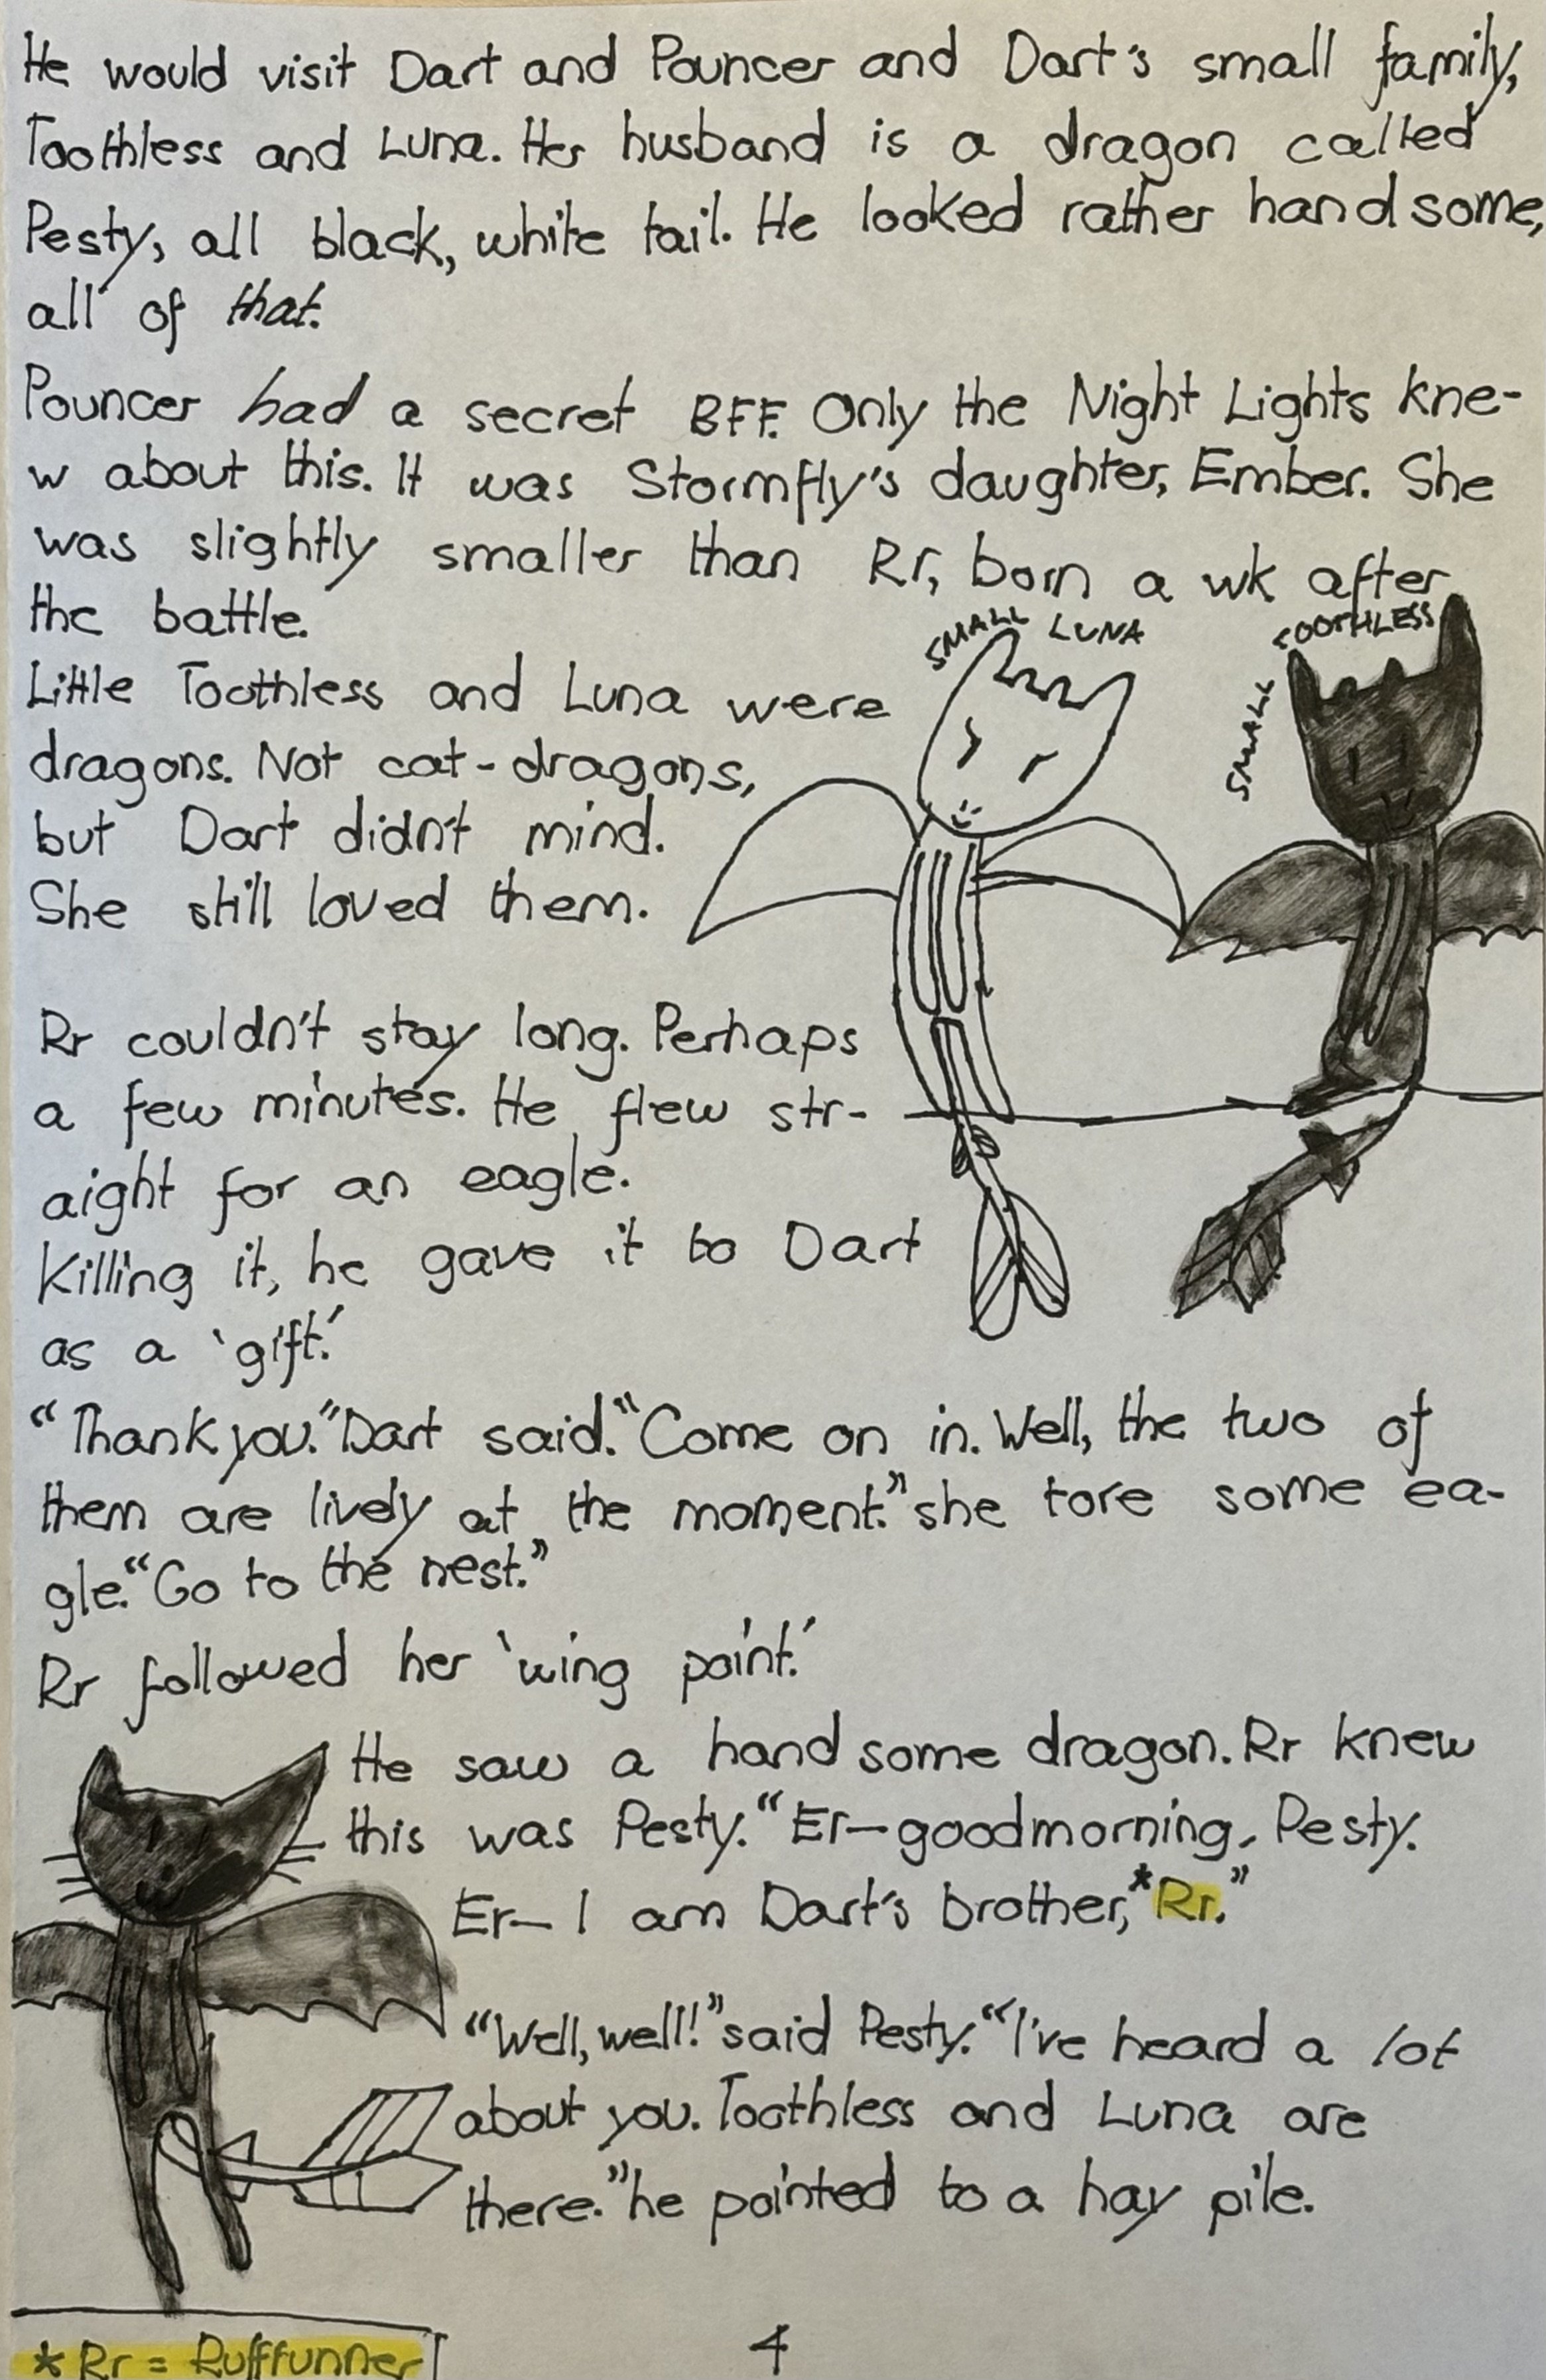 He would visit Dart and Pouncer and Dart's small family,
Toothless and Luna. Her husband is a dragon called
Pesty, all black, white tail. He looked rather handsome,
all of that.
Pouncer had a secret BFF. Only the Night Lights kne-
w about this. It was Stormfly's daughter, Ember. She
was slightly smaller than Rr, born a wk after
the battle.
SMALL LUNA
SMALL TOOTHLESS
Little Toothless and Luna were
dragons. Not cat-dragons,
but Dart didn't mind.
She still loved them.
Rr couldn't stay long. Perhaps
a few minutes. He flew str-
aight for an eagle.
Killing it, he gave it to Dart
as a 'gift.'
"Thank you." Dart said. "Come on in. Well, the two of
them are lively at the moment." she tore some ea-
gle. "Go to the nest."
Rr followed her 'wing point.'
He saw a handsome dragon. Rr knew
this was Pesty. "Er—goodmorning, Pesty.
Er— I am Dart's brother, *Rr."
"Well, well!" said Pesty. "I've heard a lot
about you. Toothless and Luna are
there." he pointed to a hay pile.
*Rr = Ruffrunner
4